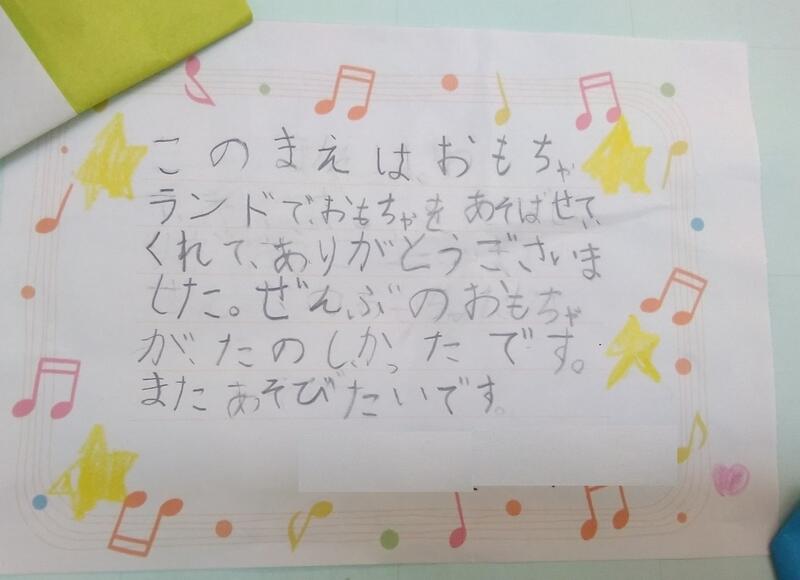 このまえはおもちゃ
ランドで、おもちゃを あそばせて、
くれて、ありがとうございま
した。ぜんぶのおもちゃ
が、たのしかったです。
またあそびたいです。